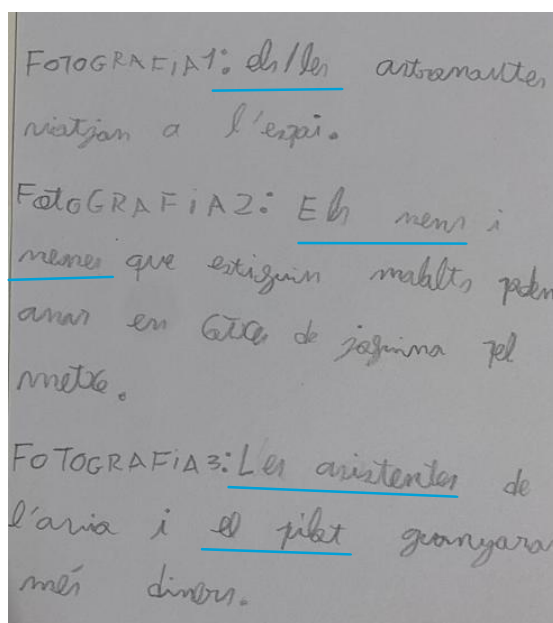 FOTOGRAFIA1: els/les astronautes
viatjan a l'espai.
FOTOGRAFIA2: Els nens i
nenes que estiguin malalts poden
anar en de joguina pel
metxe.
FOTOGRAFIA3: Les asistentes de
l'avia i el pilot guanyara
més diners.